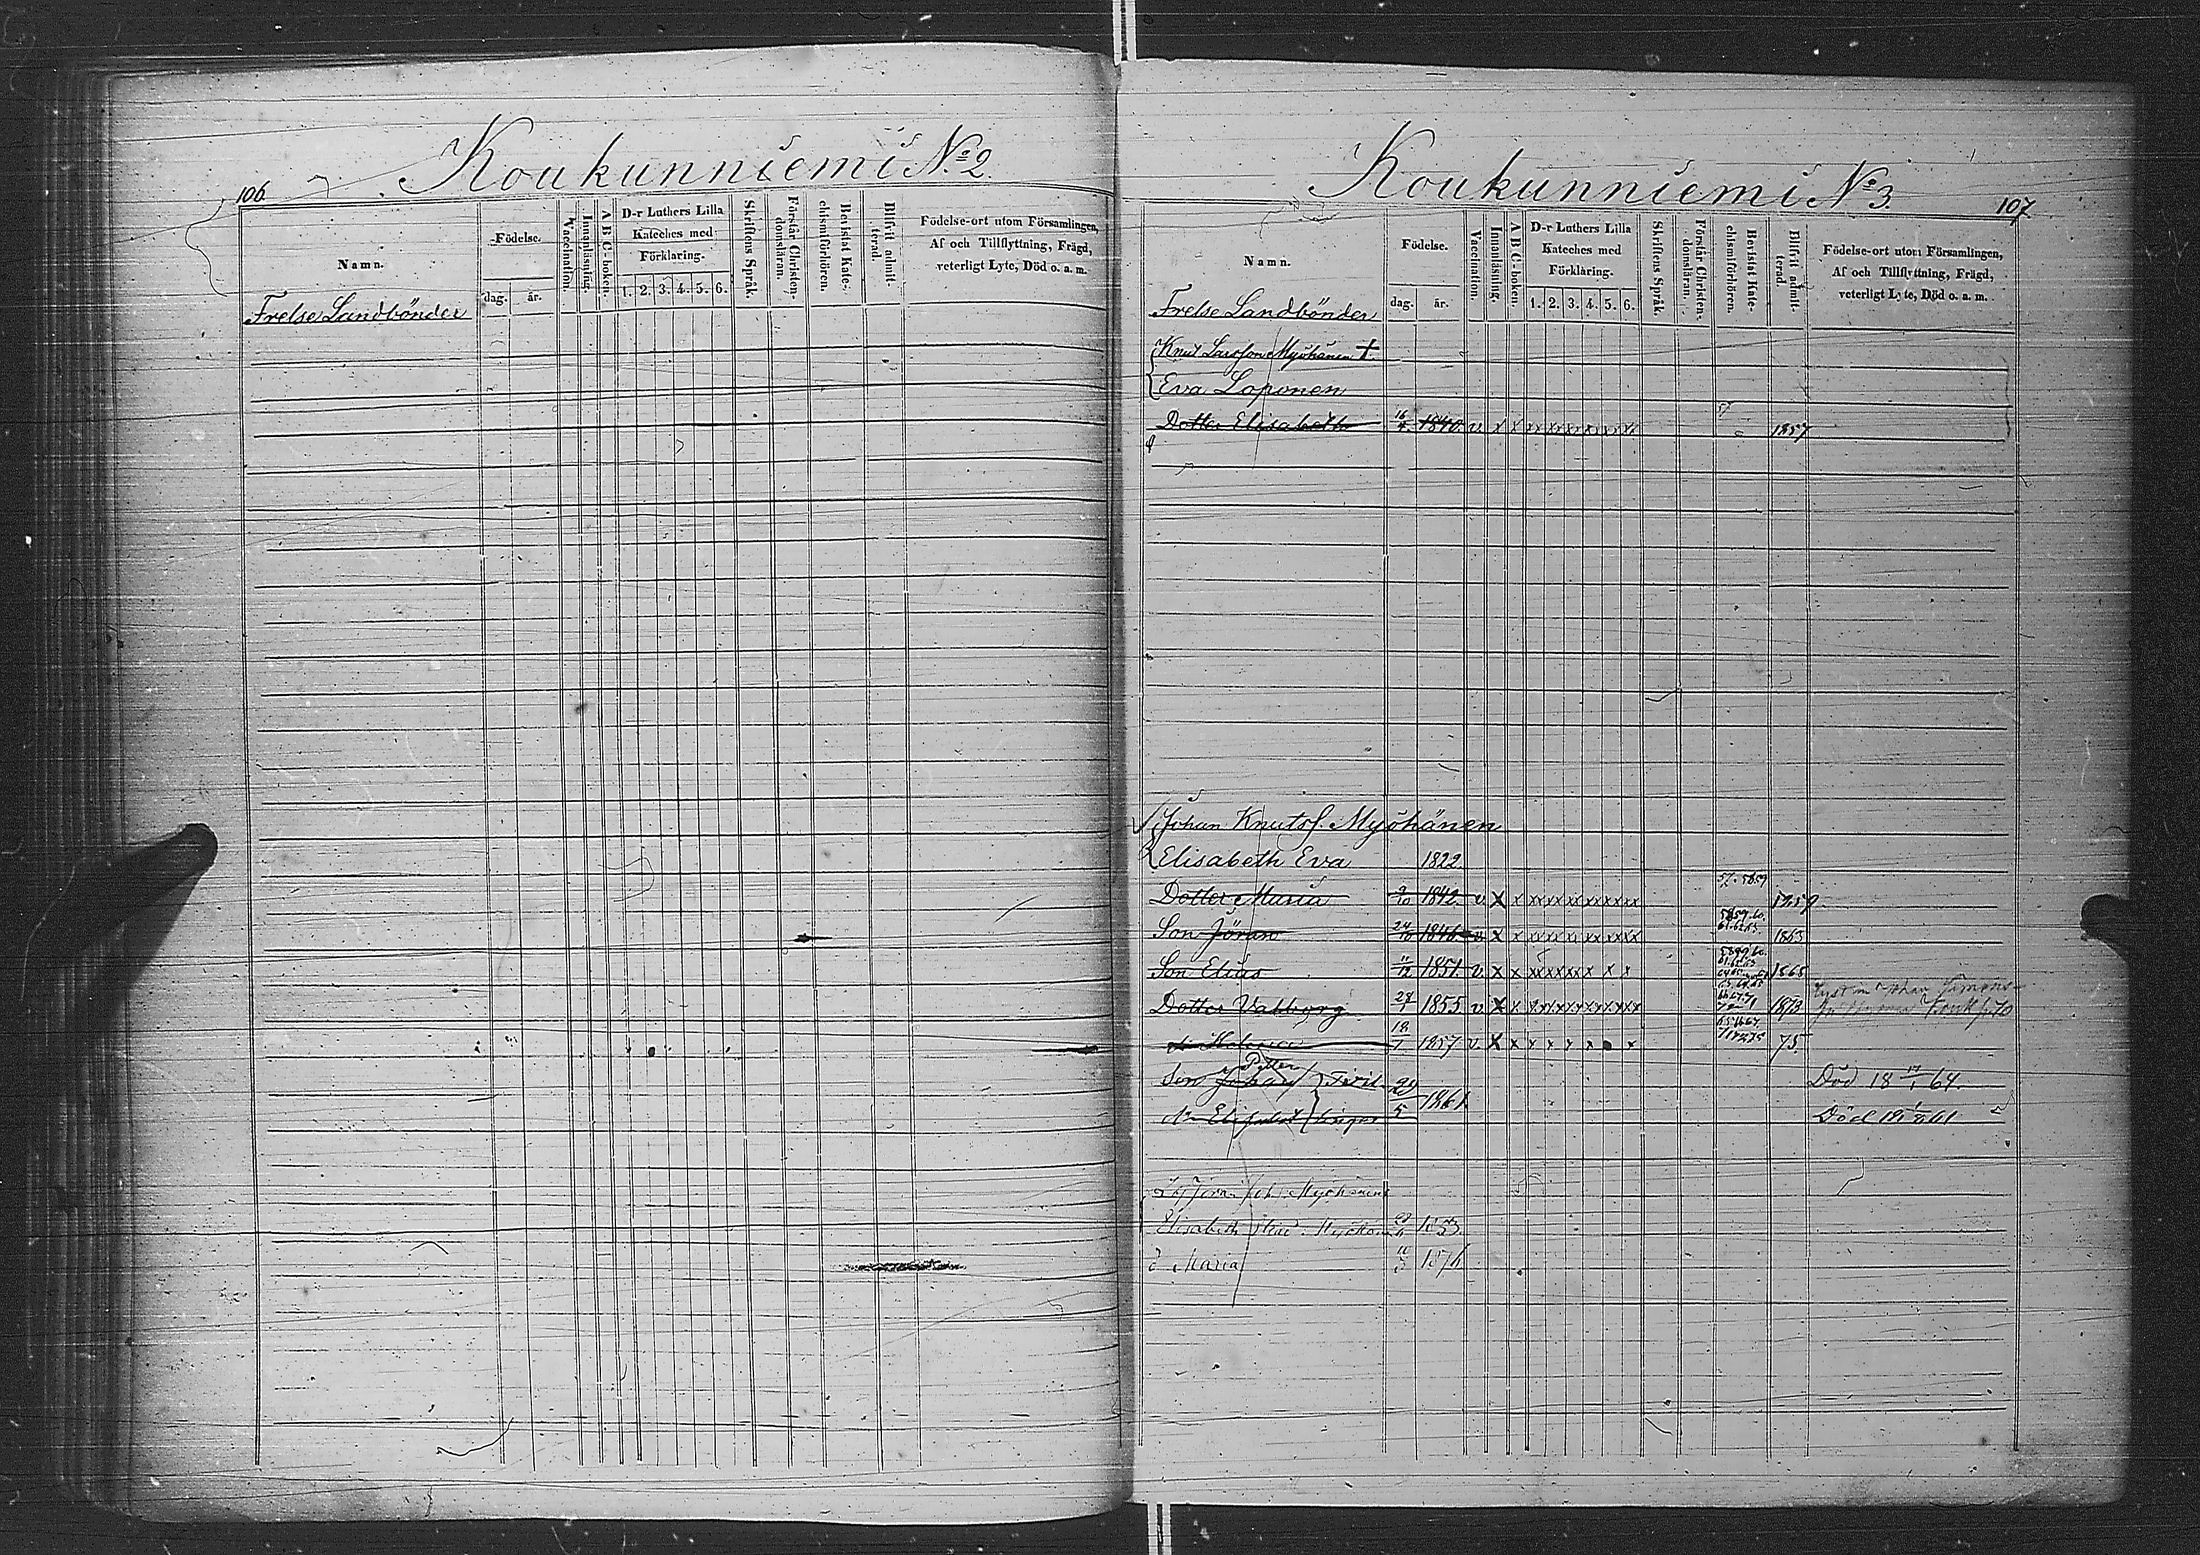 Koukunniemi No 2.
106.
Namn.
Födelse.
dag.
år.
Vaccination.
Innanläsning.
A B C-boken.
D-r Luthers Lilla
Kateches med
Förklaring.
1. 2. 3. 4. 5. 6.
Skriftens Språk.
Förstår Christen-
domsläran.
Bevistat Kate-
chismiförhören.
Blifvit admit-
terad.
Födelse-ort utom Församlingen,
Af och Tillflyttning, Frägd,
veterligt Lyte, Död o. a. m.
Frelse Landbönder
Koukunniemi No 3.
107
Namn.
Födelse.
dag.
år.
Vaccination.
Innanläsning.
A B C-boken.
D-r Luthers Lilla
Kateches med
Förklaring.
1. 2. 3. 4. 5. 6.
Skriftens Språk.
Förstår Christen-
domsläran.
Bevistat Kate-
chismiförhören.
Blifvit admit-
terad.
Födelse-ort utom Församlingen,
Af och Tillflyttning, Frägd,
veterligt Lyte, Död o. a. m.
Frelse Landbönder
Knut Larsson Myöhänen †
Eva Loponen
Dotter Elisabeth 16/4 1840. v. x x xx xx xx xx xx xx 57 1857
Johan Knutsf. Myöhänen
Elisabeth Eva 1822.
Dotter Maria 9/10 1842. v. x x xx xx xx xx xx xx 57. 58 59 1859
Son Jöran 24/10 1846 v x x xx xx xx xx xx xx 58 59. 60. 61. 62. 63. 1863
Son Elias 11/12 1851. v. x x xx xx xx x x x 1868
Dotter Valborg 28/4 1855. v. x x xx xx xx xx xx xx 1873
d: Helena 18/7 1857 v. x x x x x x x 75.
Son Johan Petter Tvil- 29/5 1861. Död 18 64.
Elisabet lingar Död 18 61
Myöhänen
Elisabeth 1853.
d Maria